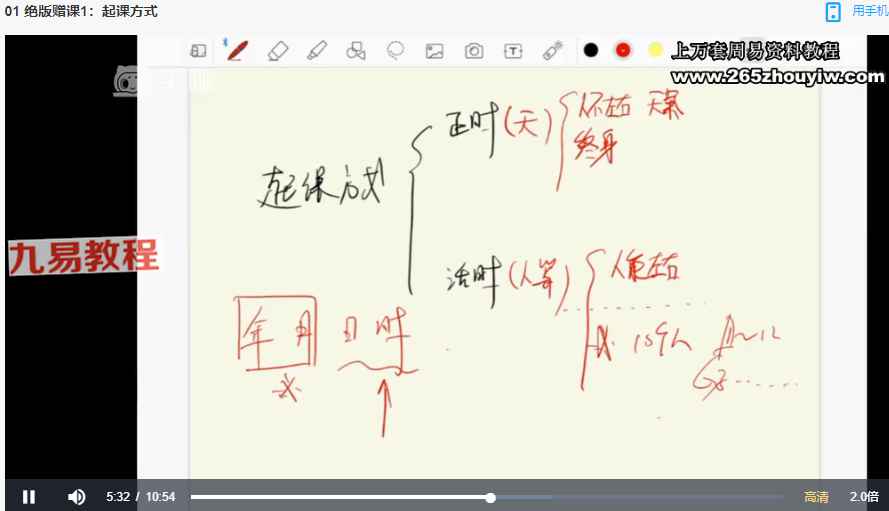 01 绝版赠课1：起课方式
用手机
上万套周易资料教程
www.265zhouyiw.com
正时(天)
人不左右 天象
终身
起课方式
九易教程
活时(人等)
人能左右
年 月 日 时
5:32 / 10:54
高清
2.0倍